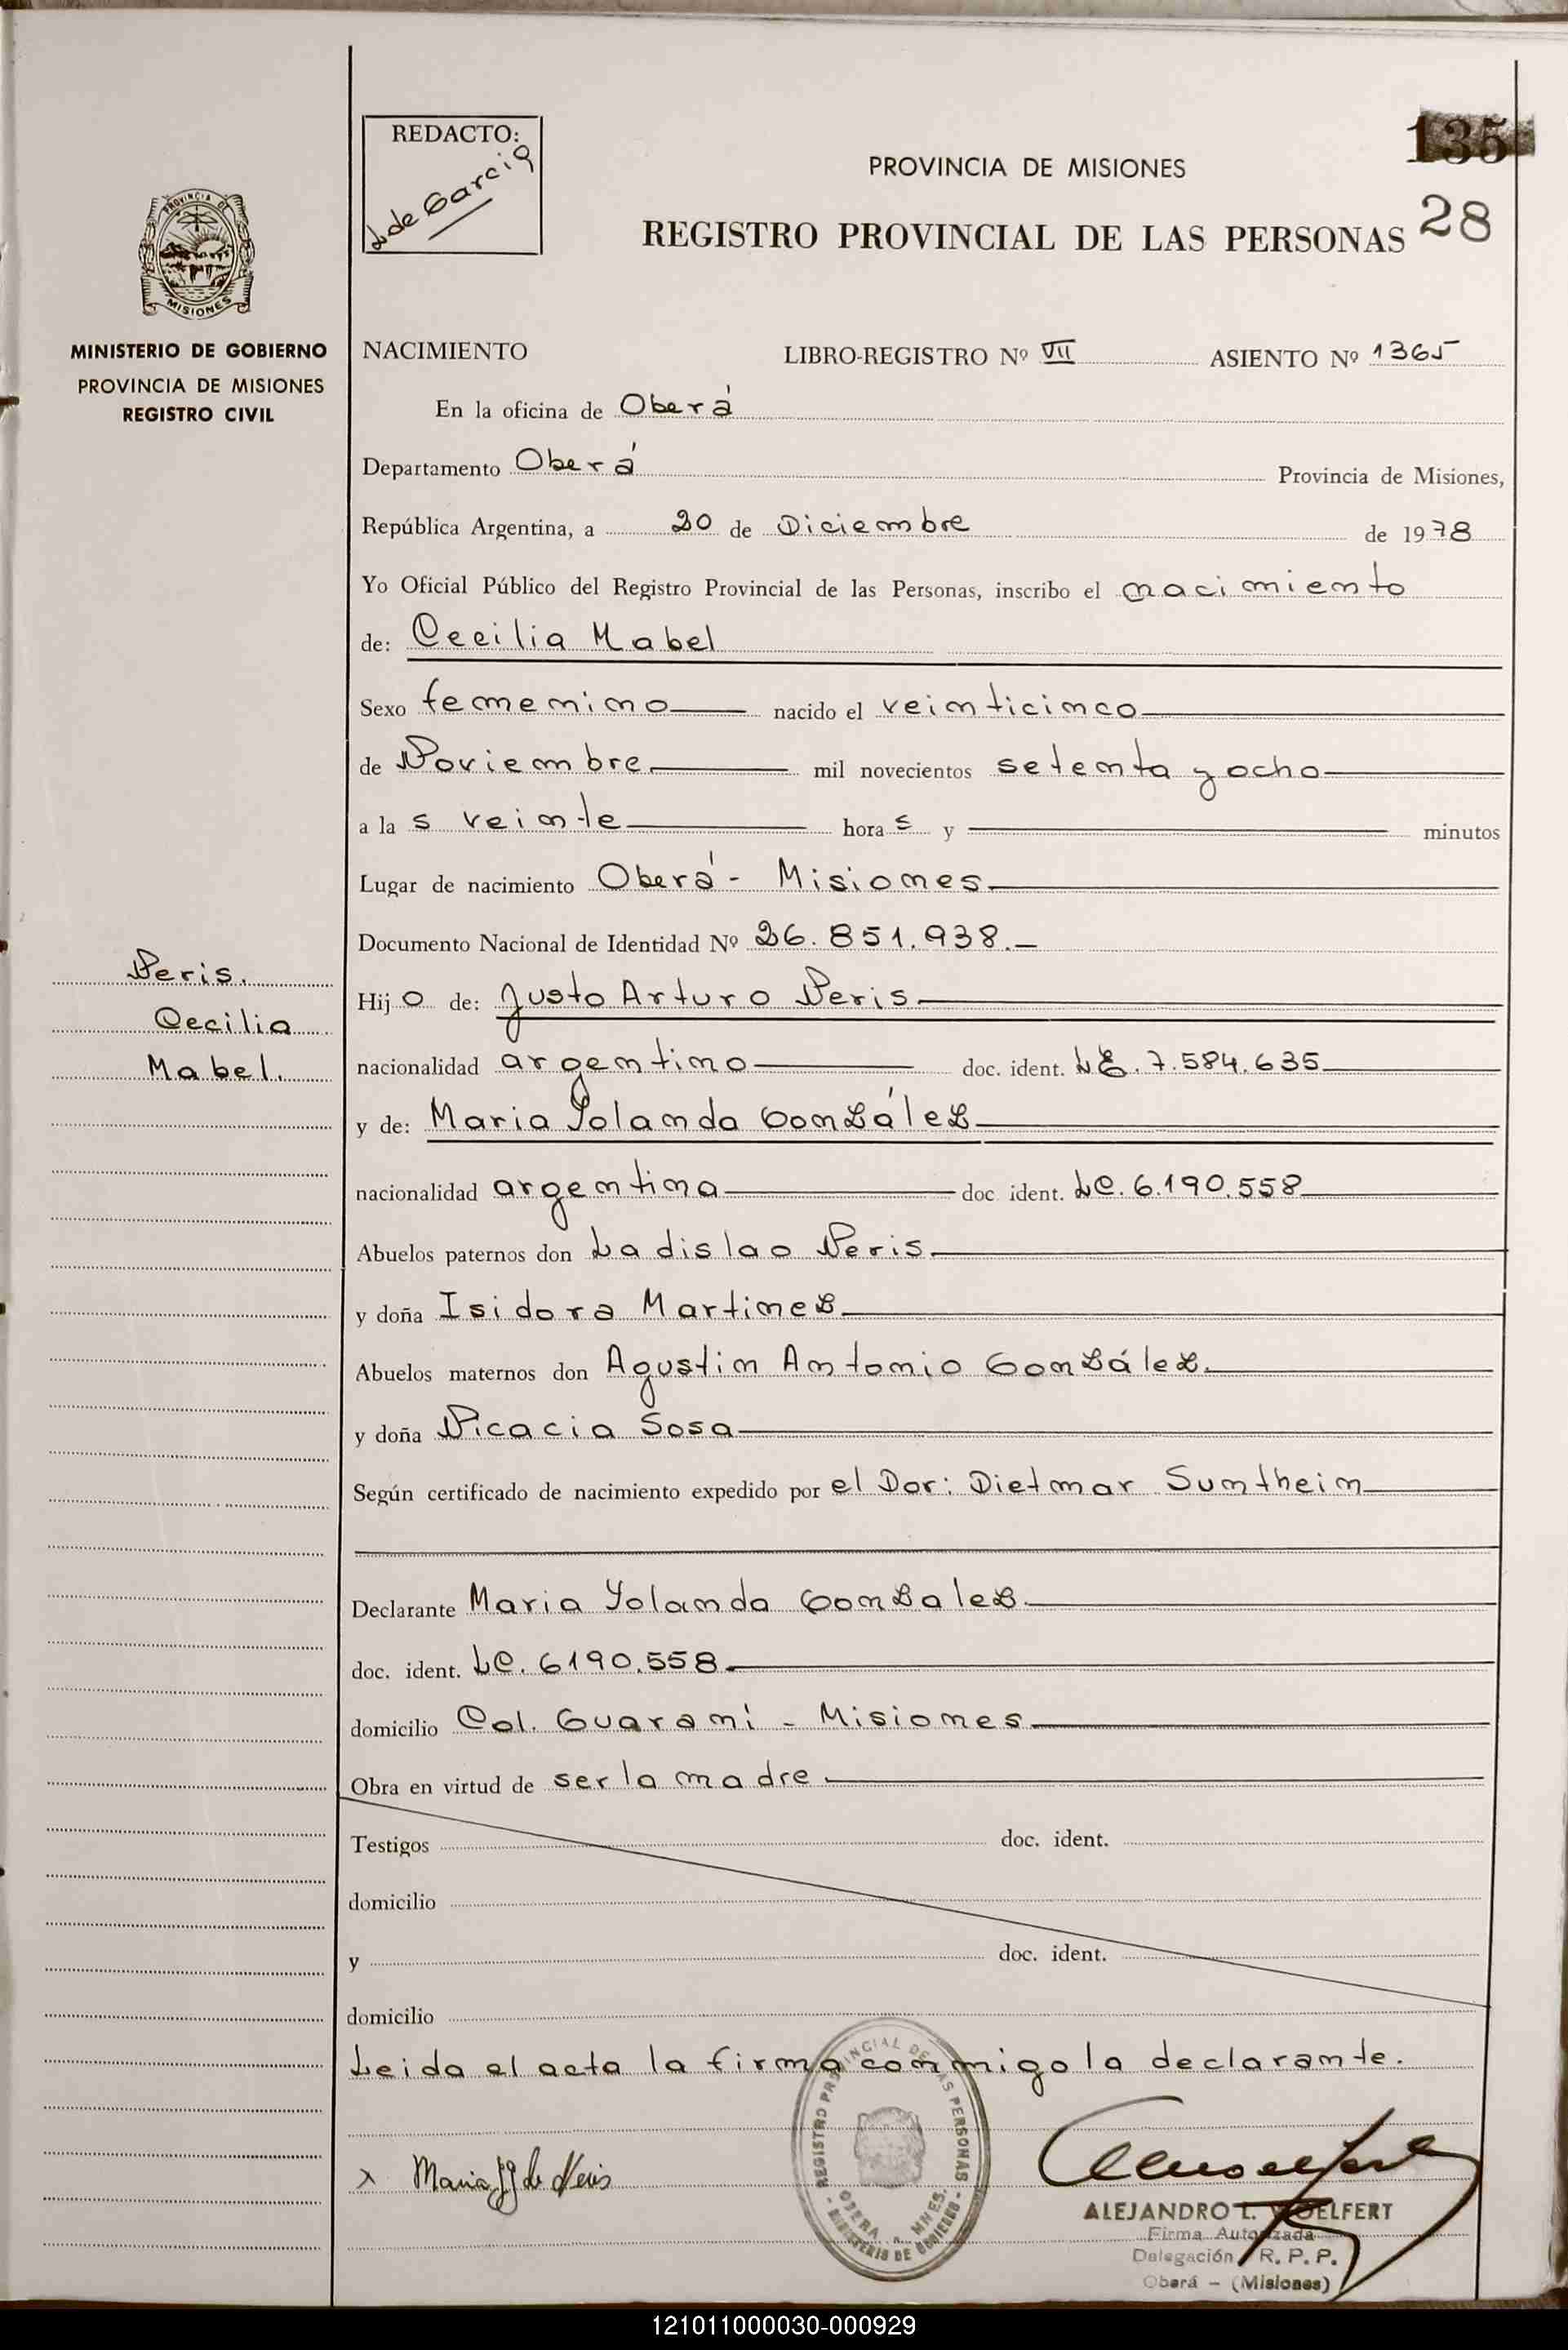 REDACTO:
L de Garcia
135
PROVINCIA DE MISIONES
28
REGISTRO PROVINCIAL DE LAS PERSONAS
PROVINCIA DE
MISIONES
MINISTERIO DE GOBIERNO
PROVINCIA DE MISIONES
REGISTRO CIVIL
NACIMIENTO LIBRO-REGISTRO Nº VII ASIENTO Nº 1365
En la oficina de Oberá
Departamento Oberá Provincia de Misiones,
República Argentina, a 20 de Diciembre de 1978
Yo Oficial Público del Registro Provincial de las Personas, inscribo el nacimiento
de: Cecilia Mabel
Sexo femenino nacido el veinticinco
de Noviembre mil novecientos setenta y ocho
a la s veinte hora s y minutos
Lugar de nacimiento Oberá - Misiones
Documento Nacional de Identidad Nº 26.851.938.-
Neris.
Cecilia
Mabel.
Hij o de: Justo Arturo Neris
nacionalidad argentino doc. ident. LE. 7.584.635
y de: Maria Yolanda González
nacionalidad argentina doc ident. LC. 6.190.558
Abuelos paternos don Ladislao Neris
y doña Isidora Martinez
Abuelos maternos don Agustin Antonio González
y doña Nicacia Sosa
Según certificado de nacimiento expedido por el Dor: Dietmar Sumtheim
Declarante Maria Yolanda Gonzalez
doc. ident. LC. 6190.558
domicilio Col. Guarani - Misiones
Obra en virtud de ser la madre
Testigos doc. ident.
domicilio
y doc. ident.
domicilio
Leida el acta la firma conmigo la declarante.
x Maria Y G de Neris
REGISTRO PROVINCIAL DE LAS PERSONAS
OBERA MNES.
- MINISTERIO DE GOBIERNO -
ALEJANDRO L. WOELFERT
Firma Autorizada
Delegación R. P. P.
Oberá - (Misiones)
121011000030-000929